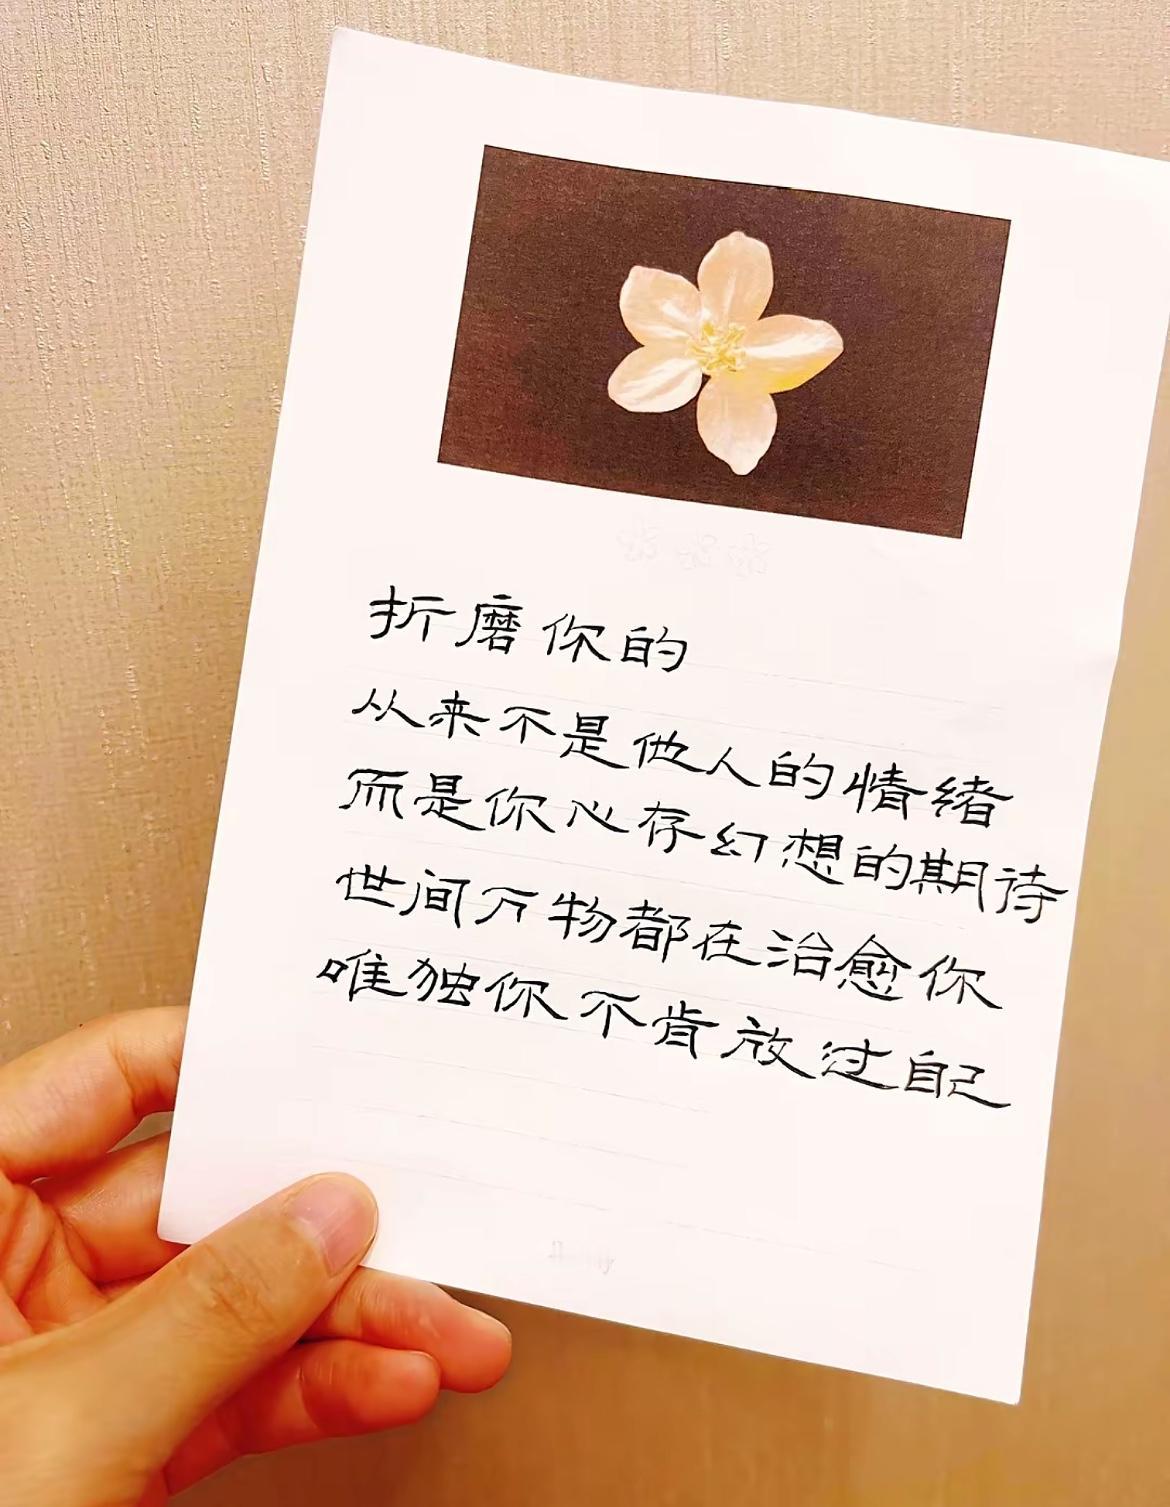 折磨你的
从来不是他人的情绪
而是你心存幻想的期待
世间万物都在治愈你
唯独你不肯放过自己